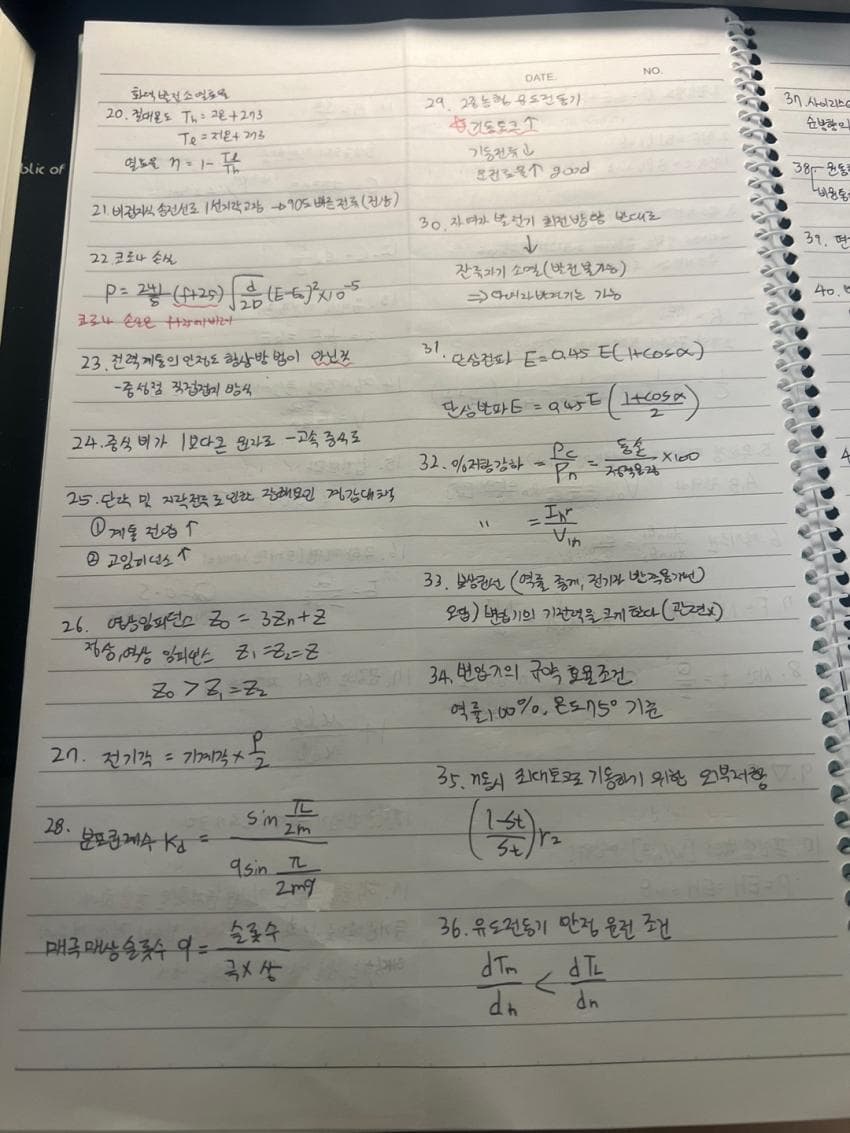 blic of
화력발전소 열효율
20. 절대온도 Th = 고온+273
Tℓ = 저온+273
열효율 η = 1 - Tℓ/Th
21. 비접지식 송전선로 1선지락고장 → 90도 빠른 전류 (진상)
22 코로나 손실
P = 241/δ (f+25) √(d/2D) (E-E₀)² × 10⁻⁵
코로나 손실은 f+25에 비례
23. 전력계통의 안정도 향상방법이 아닌것
- 중성점 직접접지 방식
24. 증식비가 1보다 큰 원자로 - 고속 증식로
25. 단락 및 지락전류로 인한 장해 경감대책
① 계통 전압 ↑
② 고임피던스 ↑
26. 영상임피던스 Z₀ = 3Zn + Z
정상, 역상 임피던스 Z₁ = Z₂ = Z
Z₀ > Z₁ = Z₂
27. 전기각 = 기계각 × P/2
28. 분포권계수 Kd = sin π/2m / q sin π/2mq
매극매상슬롯수 q = 슬롯수 / 극×상
DATE. NO.
29. 2중농형 유도전동기
기동토크 ↑
기동전류 ↓
운전효율 ↑ good
30. 자여자 발전기 회전방향 반대로
↓
잔류자기 소멸 (발전불가능)
⇒ 타여자발전기는 가능
31. 단상전파 E = 0.45 E (1+cosα)
단상반파 E = 0.45 E (1+cosα / 2)
32. %저항강하 = Pc/Pn = 동손/정격용량 × 100
〃 = Inr/V1n
33. 보상권선 (역률 좋게, 전기자 반작용개선)
오답) 변압기의 기전력을 크게 한다 (관련x)
34. 변압기의 규약효율조건
역률 100%, 온도 75° 기준
35. 기동시 최대토크로 기동하기 위한 외부저항
(1-St / St) r₂
36. 유도전동기 안정 운전 조건
dTm/dn < dTL/dn
37. 사이리스
순방향
38
39. 편
40.